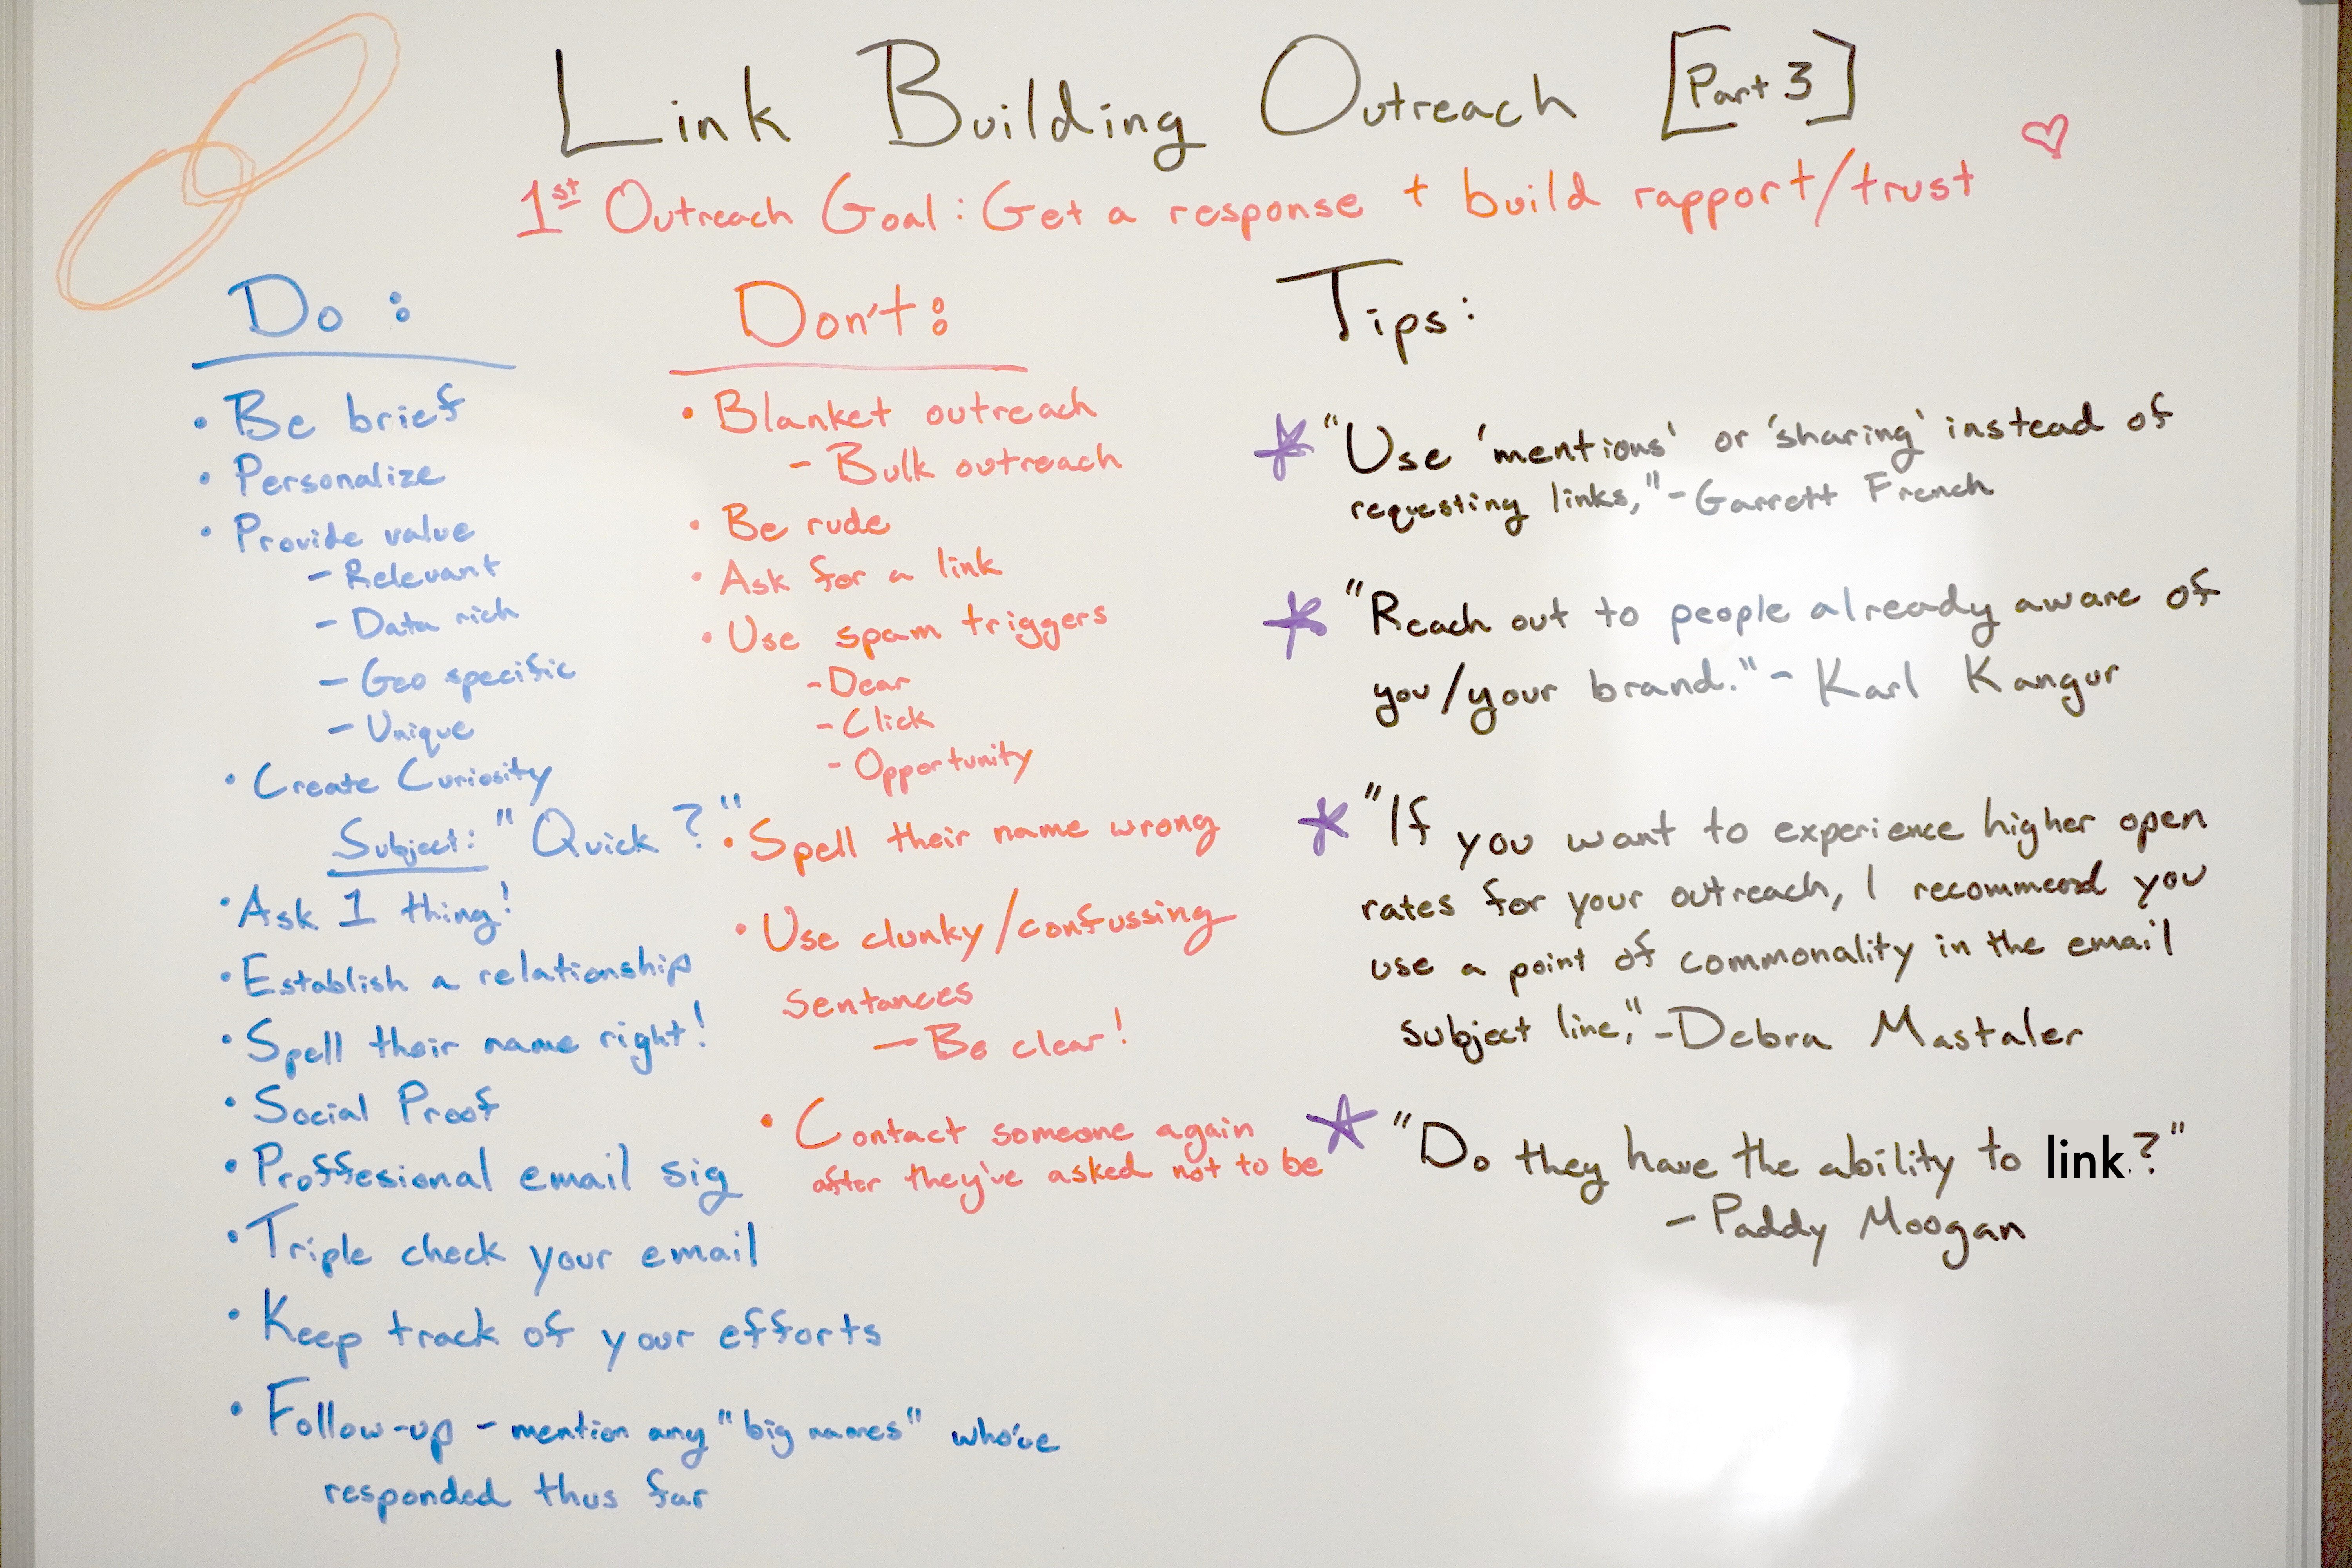 Link Building Outreach [Part 3]
1st Outreach Goal: Get a response + build rapport/trust
Do:
• Be brief
• Personalize
• Provide value
– Relevant
– Data rich
– Geo specific
– Unique
• Create Curiosity
Subject: "Quick ?"
• Ask 1 thing!
• Establish a relationship
• Spell their name right!
• Social Proof
• Proffesional email sig
• Triple check your email
• Keep track of your efforts
• Follow-up - mention any "big names" who've
responded thus far
Don't:
• Blanket outreach
- Bulk outreach
• Be rude
• Ask for a link
• Use spam triggers
- Dear
- Click
- Opportunity
• Spell their name wrong
• Use clunky/confussing
sentances
— Be clear!
• Contact someone again
after they've asked not to be
Tips:
* "Use 'mentions' or 'sharing' instead of
requesting links," - Garrett French
* "Reach out to people already aware of
you/your brand." - Karl Kangur
* "If you want to experience higher open
rates for your outreach, I recommend you
use a point of commonality in the email
subject line," - Debra Mastaler
* "Do they have the ability to link.?"
- Paddy Moogan